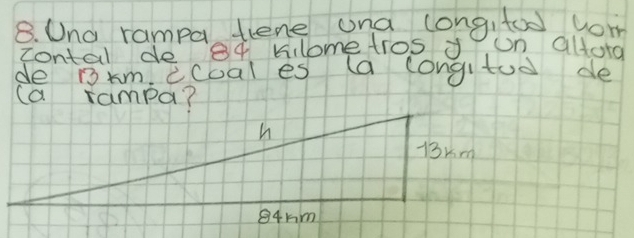 8. Una rampa tiene una longitud hori
zontal de 84 kilometros y un altura
de 13 km. ¿coal es la longitud de
la rampa?
h
13km
84km